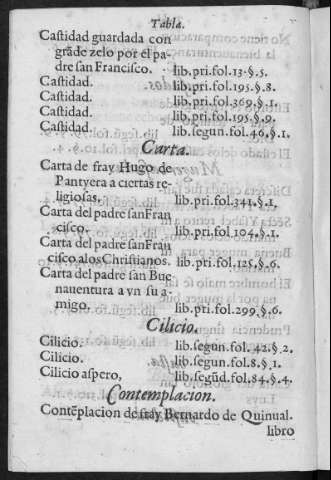 Tabla.
Castidad guardada con
grāde zelo por el pa-
dre san Francisco. lib.pri.fol.13.§.5.
Castidad. lib.pri.fol.195.§.8.
Castidad. lib.pri.fol.369.§.1.
Castidad. lib.pri.fol.195.§.9.
Castidad. lib.segun.fol.46.§.1.
Carta.
Carta de fray Hugo de
Pantyera a ciertas re-
ligiosas. lib.pri.fol.341.§.1,
Carta del padre san Fran
cisco. lib.pri.fol.104.§.1.
Carta del padre san Fran
cisco a los Christianos. lib.pri.fol.125.§.6.
Carta del padre san Buc
nauentura a vn su a-
migo. lib.pri.fol.299.§.6.
Cilicio.
Cilicio. lib.segun.fol.42.§.2.
Cilicio. lib.segun.fol.8.§.1.
Cilicio aspero, lib.segūd.fol.84.§.4.
Contemplacion.
Contēplacion de fray Bernardo de Quinual.
libro